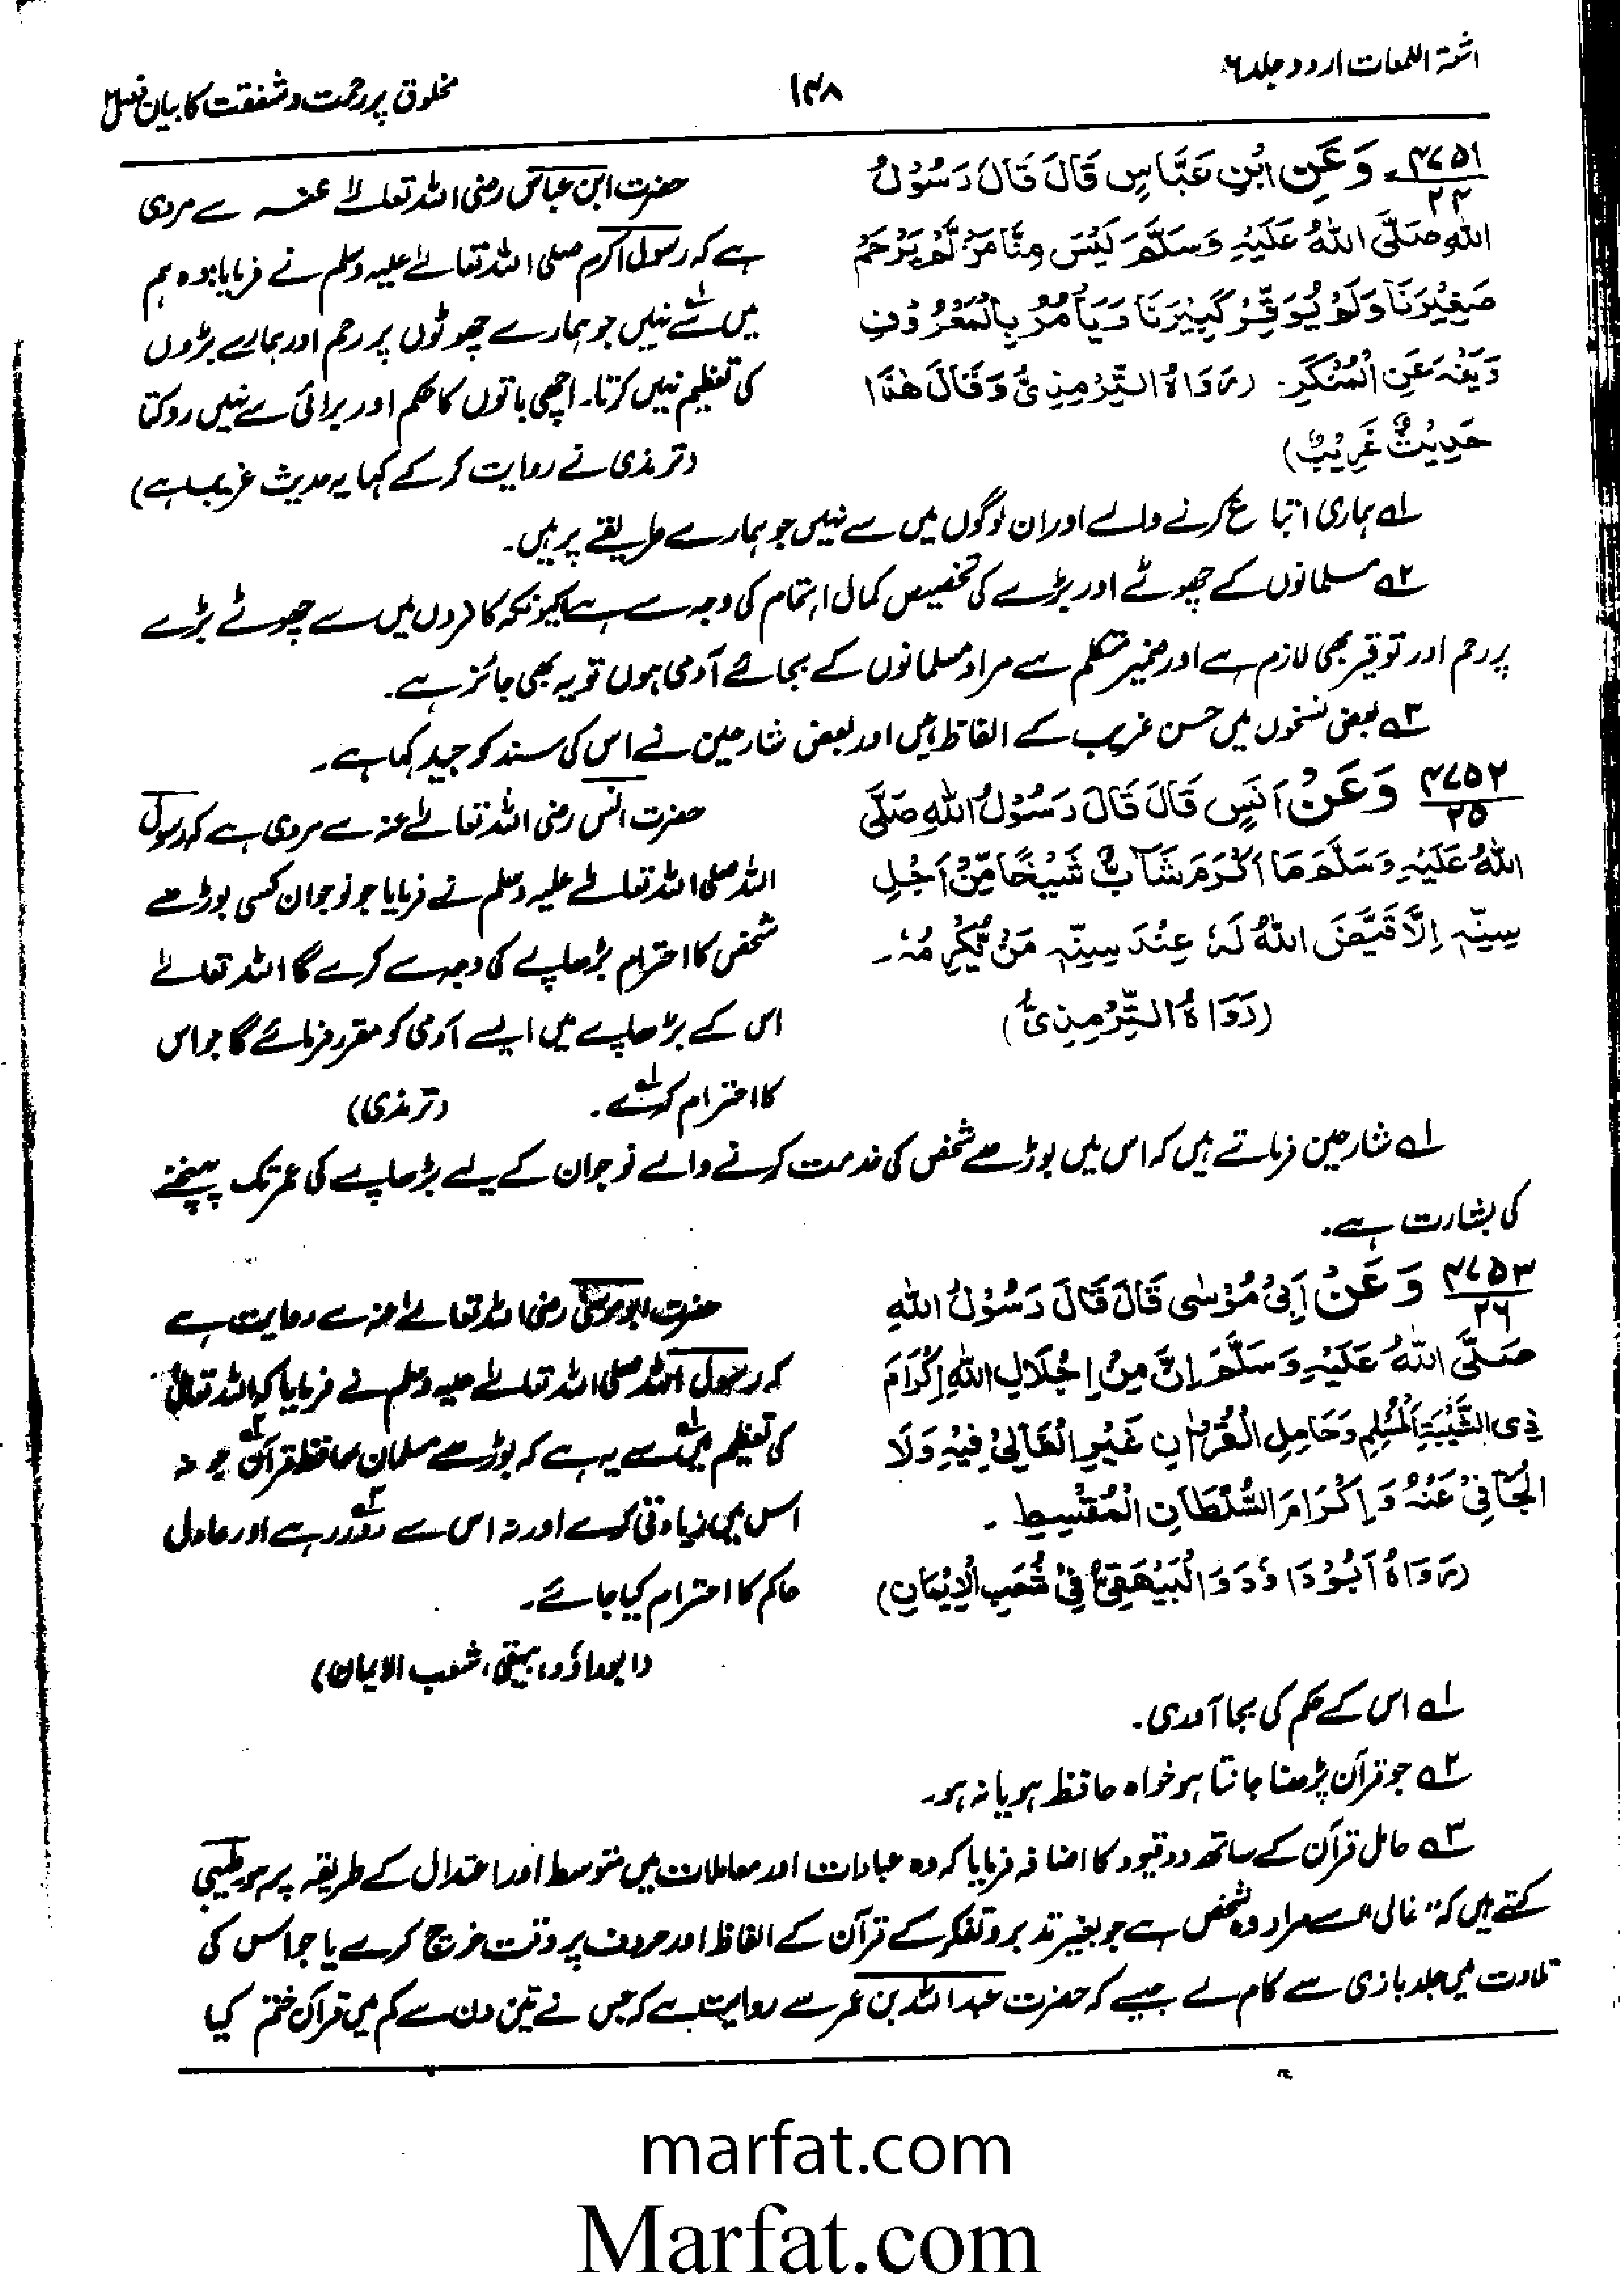 اشعۃ اللمعات اردو جلد ۶
۱۴۸
مخلوق پر رحمت و شفقت کا بیان فصل ۲
۴۷۵۱
۲۴
وَعَنِ ابْنِ عَبَّاسٍ قَالَ قَالَ رَسُوْلُ
اللّٰهِ صَلَّى اللّٰهُ عَلَيْهِ وَسَلَّمَ لَيْسَ مِنَّا مَنْ لَّمْ يَرْحَمْ
صَغِيْرَنَا وَلَمْ يُوَقِّرْ كَبِيْرَنَا وَيَأْمُرْ بِالْمَعْرُوْفِ
وَيَنْهَ عَنِ الْمُنْكَرِ. (رَوَاهُ التِّرْمِذِيُّ وَقَالَ هٰذَا
حَدِيْثٌ غَرِيْبٌ)
حضرت ابن عباس رضی اللہ تعالےٰ عنہ سے مروی
ہے کہ رسول اکرم صلی اللہ تعالےٰ علیہ وسلم نے فرمایا: وہ ہم
میں سے نہیں جو ہمارے چھوٹوں پر رحم اور ہمارے بڑوں
کی تعظیم نہیں کرتا۔ اچھی باتوں کا حکم اور برائی سے نہیں روکتا
(ترمذی نے روایت کر کے کہا یہ حدیث غریب ہے)
۱ے ہماری اتباع کرنے والے اور ان لوگوں میں سے نہیں جو ہمارے طریقے پر ہیں۔
۲ے مسلمانوں کے چھوٹے اور بڑے کی تخصیص کمال اہتمام کی وجہ سے ہے کیونکہ کافروں میں سے چھوٹے بڑے
پر رحم اور توقیر بھی لازم ہے اور ضمیر متکلم سے مراد مسلمانوں کے بجائے آدمی ہوں تو یہ بھی جائز ہے۔
۳ے بعض نسخوں میں حسن غریب کے الفاظ ہیں اور بعض شارحین نے اس کی سند کو جید کہا ہے۔
۴۷۵۲
۲۵
وَعَنْ اَنَسٍ قَالَ قَالَ رَسُوْلُ اللّٰهِ صَلَّى
اللّٰهُ عَلَيْهِ وَسَلَّمَ مَا اَكْرَمَ شَآبٌّ شَيْخًا مِّنْ اَجْلِ
سِنِّهٖ اِلَّا قَيَّضَ اللّٰهُ لَهٗ عِنْدَ سِنِّهٖ مَنْ يُّكْرِمُهٗ۔
(رَوَاهُ التِّرْمِذِيُّ)
حضرت انس رضی اللہ تعالےٰ عنہ سے مروی ہے کہ رسول
اللہ صلی اللہ تعالےٰ علیہ وسلم نے فرمایا جو نوجوان کسی بوڑھے
شخص کا احترام بڑھاپے کی وجہ سے کرے گا اللہ تعالےٰ
اس کے بڑھاپے میں ایسے آدمی کو مقرر فرمائے گا جو اس
کا احترام کرے۱ے۔ (ترمذی)
۱ے شارحین فرماتے ہیں کہ اس میں بوڑھے شخص کی خدمت کرنے والے نوجوان کے لیے بڑھاپے کی عمر تک پہنچنے
کی بشارت ہے۔
۴۷۵۳
۲۶
وَعَنْ اَبِيْ مُوْسٰى قَالَ قَالَ رَسُوْلُ اللّٰهِ
صَلَّى اللّٰهُ عَلَيْهِ وَسَلَّمَ اِنَّ مِنْ اِجْلَالِ اللّٰهِ اِكْرَامَ
ذِي الشَّيْبَةِ الْمُسْلِمِ وَحَامِلِ الْقُرْاٰنِ غَيْرِ الْغَالِيْ فِيْهِ وَلَا
الْجَافِيْ عَنْهُ وَاِكْرَامَ السُّلْطَانِ الْمُقْسِطِ۔
(رَوَاهُ اَبُوْدَاوٗدَ وَالْبَيْهَقِيُّ فِيْ شُعَبِ الْاِيْمَانِ)
حضرت ابو موسٰی رضی اللہ تعالےٰ عنہ سے روایت ہے
کہ رسول اللہ صلی اللہ تعالےٰ علیہ وسلم نے فرمایا کہ اللہ تعالیٰ
کی تعظیم میں۱ے سے یہ ہے کہ بوڑھے مسلمان حافظ قرآن۲ے جو نہ
اس میں زیادتی کرے اور نہ اس سے دور رہے۳ے اور عادل
حاکم کا احترام کیا جائے۔
(ابوداؤد، بیہقی، شعب الایمان)
۱ے اس کے حکم کی بجا آوری۔
۲ے جو قرآن پڑھنا جانتا ہو خواہ حافظ ہو یا نہ ہو۔
۳ے حامل قرآن کے ساتھ دو قیود کا اضافہ فرمایا کہ وہ عبادات اور معاملات میں متوسط اور اعتدال کے طریقہ پر ہو طیبی
کہتے ہیں کہ "غالی" سے مراد وہ شخص ہے جو بغیر تدبر و تفکر کے قرآن کے الفاظ اور حروف پر وقت خرچ کرے یا جو اس کی
تلاوت میں جلد بازی سے کام لے جیسے کہ حضرت عبد اللہ بن عمر سے روایت ہے کہ جس نے تین دن سے کم میں قرآن ختم کیا
marfat.com
Marfat.com